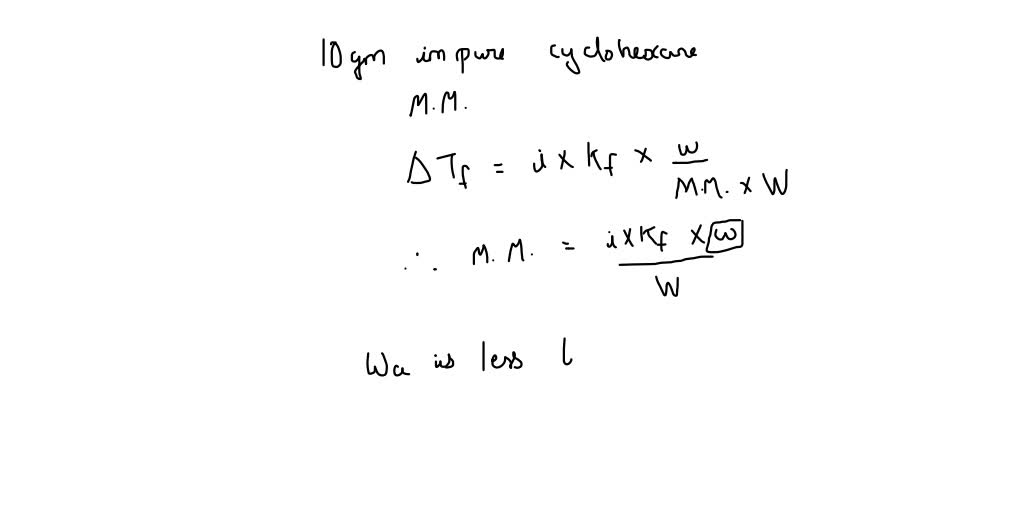 10 gm impure cyclohexane
M.M.
ΔTf = i × Kf × w / M.M. × W
∴ M.M. = i × Kf × w / W
Wa is less l